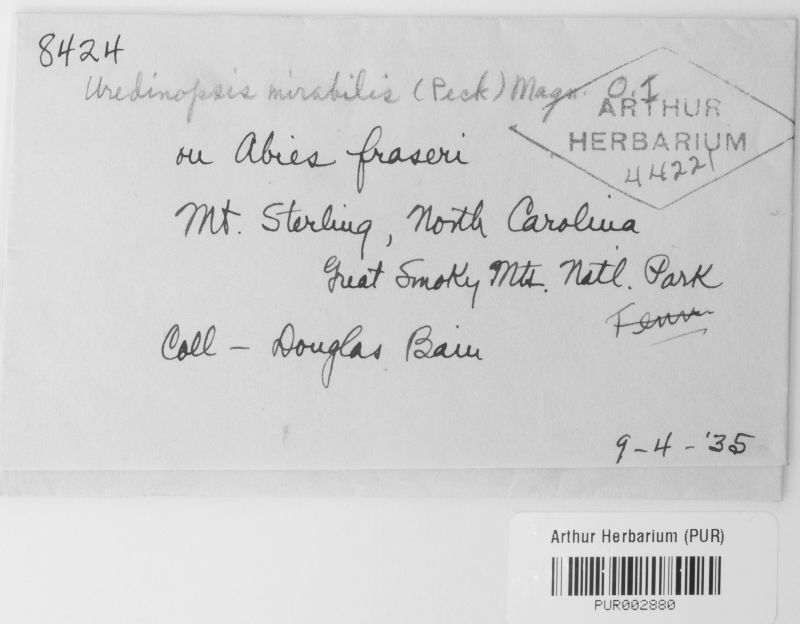 8424
Uredinopsis mirabilis (Peck) Magn. O, I
ARTHUR
HERBARIUM
44221
on Abies fraseri
Mt. Sterling, North Carolina
Great Smoky Mts. Natl. Park
Tenn.
Coll - Douglas Bain
9-4-'35
Arthur Herbarium (PUR)
PUR002880